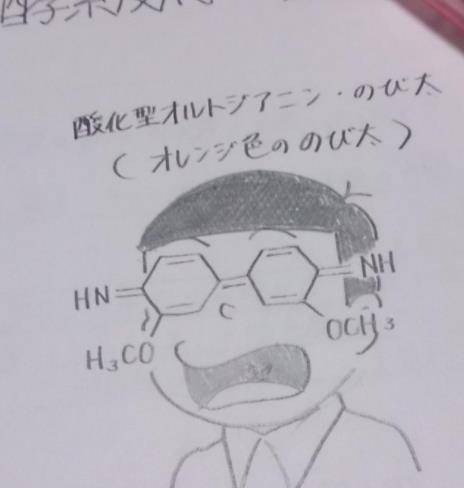 酸化型オルトジアニン・のび太
(オレンジ色ののび太)
NH
HN
OCH₃
H₃CO